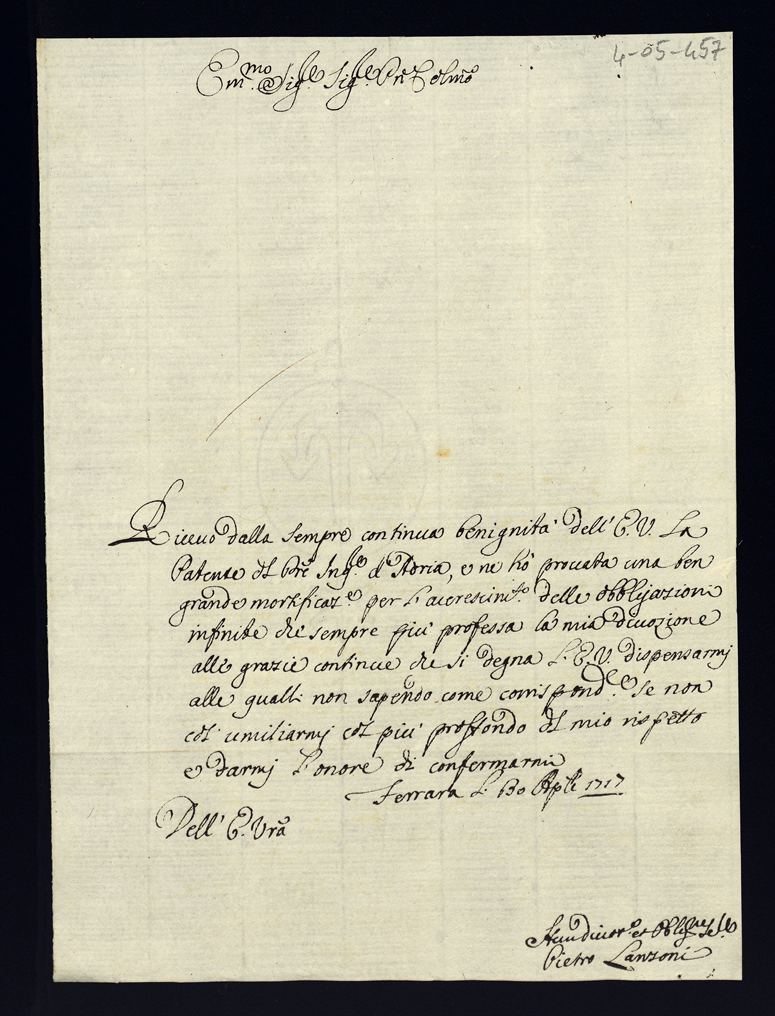 4-05-457
Em.mo Sig.re Sig.re Prõn Colmo
Riceuo dalla sempre continua benignità dell' E. V. La
Patente del Pre Ing.re d'Adria, e ne hò prouata una ben
grande mortificaz.e per l'accrescim.to delle obbligazioni
infinite che sempre più professa la mia diuozione
alle grazie continue che si degna l'E. V. dispensarmi
alle quali non sapendo come corrispond.e se non
col umiliarmi col più proffondo del mio rispetto
e darmi l'onore di confermarmi
Ferrara li 30 Aplē 1717
Dell' E. Vra
diuot.o et Obblig.
Pietro Lanzoni